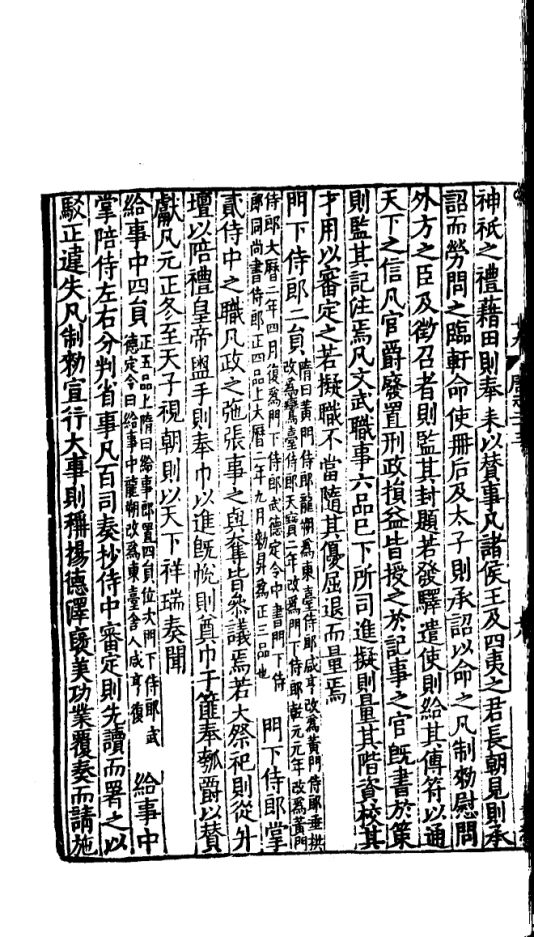 神祇之禮藉田則奉耒以賛事凡諸侯王及四夷之君長朝見則承
詔而勞問之臨軒命使册后及太子則承詔以命之凡制勑慰問
外方之臣及徵召者則監其封題若發驛遣使則給其傳符以通
天下之信凡官爵廢置刑政損益皆授之於記事之官旣書於策
則監其記注焉凡文武職事六品巳下所司進擬則量其階資校其
才用以審定之若擬職不當隨其優屈退而量焉
門下侍郎二貟隋曰黃門侍郎龍朔爲東臺侍郎咸亨改爲黃門侍郎垂拱
改爲鸞臺侍郎天寶二年改爲門下侍郎乾元元年改爲黃門
侍郎大曆二年四月復爲門下侍郎武德定令中書門下侍
郎同尚書侍郎正四品上大曆二年九月勑昇爲正三品也門下侍郎掌
貳侍中之職凡政之弛張事之與奪皆叅議焉若大祭祀則從升
壇以陪禮皇帝盥手則奉巾以進旣帨則奠巾于篚奉瓠爵以賛
獻凡元正冬至天子視朝則以天下祥瑞奏聞
給事中四貟正五品上隋曰給事郎置四貟位次門下侍郎武
德定令曰給事中龍朔改爲東臺舍人咸亨復給事中
掌陪侍左右分判省事凡百司奏抄侍中審定則先讀而署之以
駮正違失凡制勑宣行大事則稱揚德澤褒美功業覆奏而請施